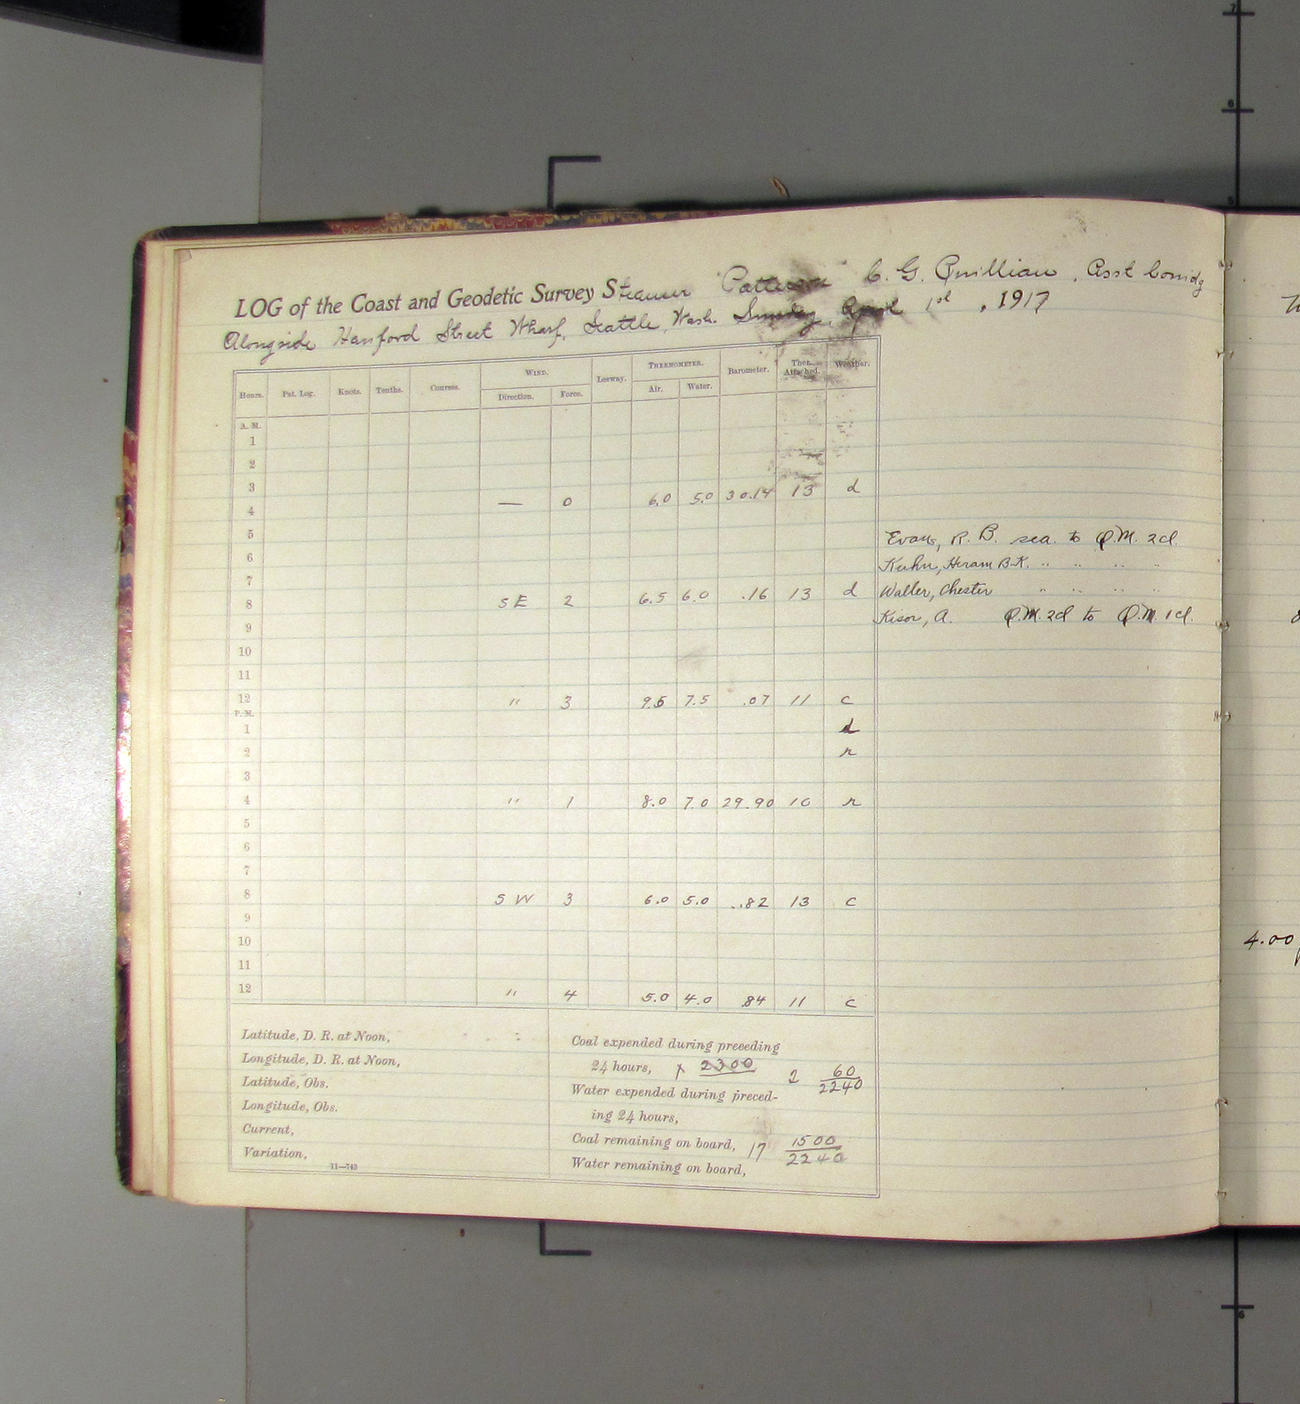 LOG of the Coast and Geodetic Survey Steamer "Patterson" C. G. Quillian, Asst. Comdg
Alongside Hanford Street Wharf, Seattle, Wash. Sunday, April 1st, 1917
Hours. Pat. Log. Knots. Tenths. Courses. WIND. Leeway. THERMOMETER. Barometer. Ther. Attached. Weather.
Direction. Force. Air. Water.
A. M.
1
2
3
4 — 0 6.0 5.0 30.14 13 d
5 Evans, R. B. sea. to Q.M. 2cl.
6 Kuhn, Hiram B.K. " " " "
7
8 SE 2 6.5 6.0 .16 13 d Waller, Chester " " " "
9 Kison, A. Q.M. 2cl to Q.M. 1cl.
10
11
12 " 3 9.5 7.5 .07 11 c
P. M.
1 d
2 r
3
4 " 1 8.0 7.0 29.90 10 r
5
6
7
8 SW 3 6.0 5.0 .82 13 c
9
10
11
12 " 4 5.0 4.0 .84 11 c
4.00
Latitude, D. R. at Noon,
Longitude, D. R. at Noon,
Latitude, Obs.
Longitude, Obs.
Current,
Variation,
11—743
Coal expended during preceding
24 hours, 2300 2 60/2240
Water expended during preced-
ing 24 hours,
Coal remaining on board, 17 1500/2240
Water remaining on board,
7
6
5
6